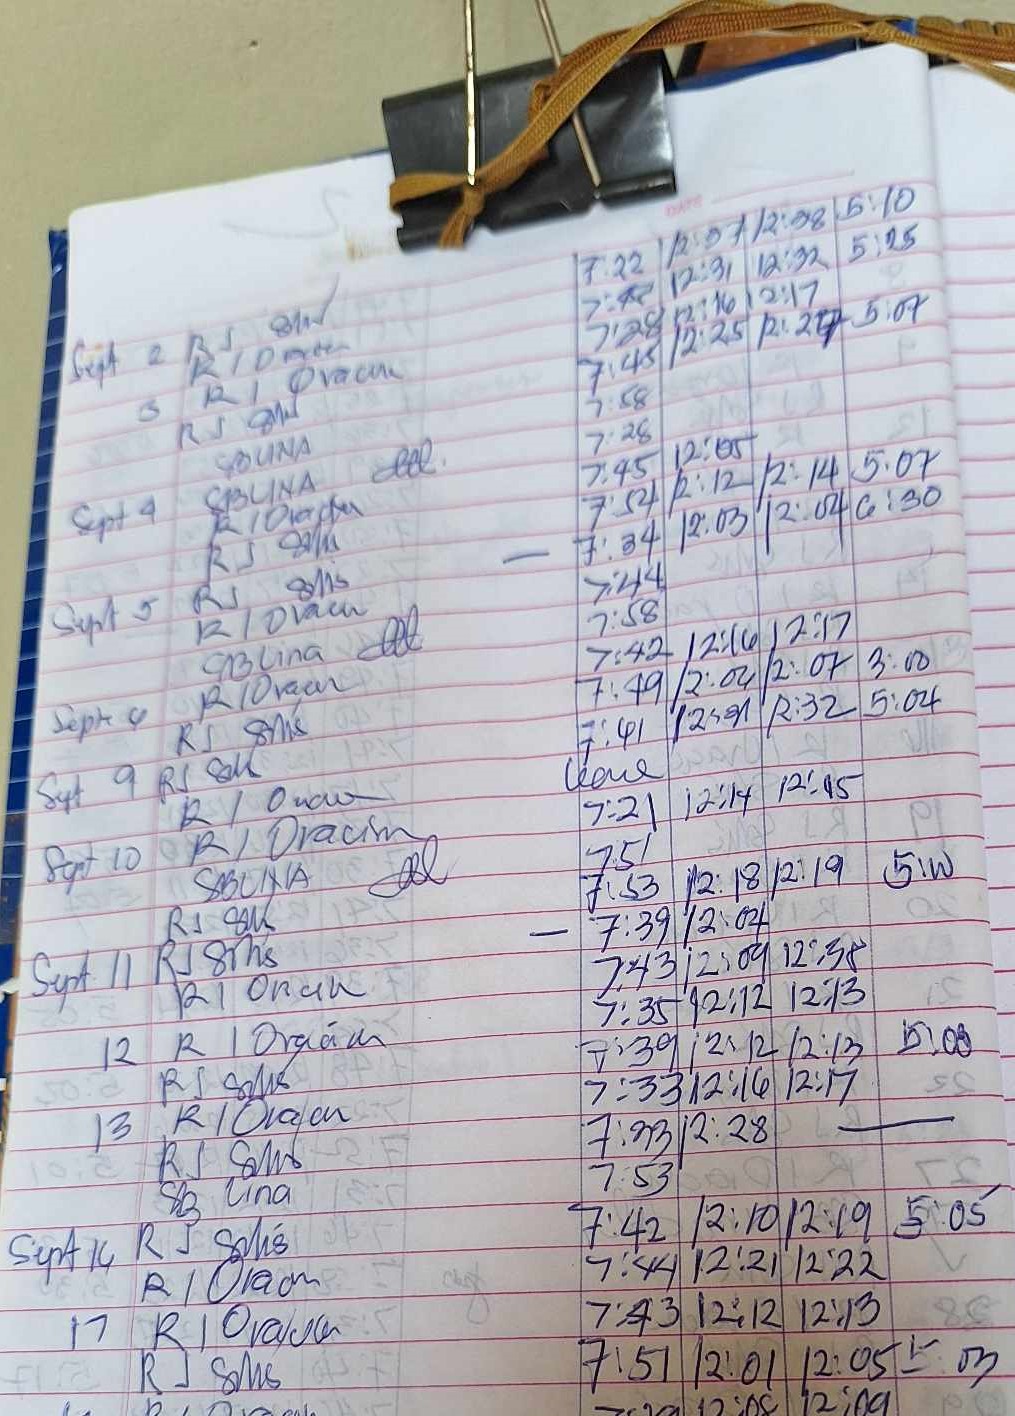 Sept 2 RJ Solis 7:22 12:37 12:38 5:10
R I Oracion 7:42 12:31 12:32 5:25
3 R I Oracion 7:28 12:16 12:17
RJ Solis 7:45 12:25 12:27 5:07
SBLINA 7:58
Sept 4 SBLINA 7:28
R I Oracion 7:45 12:05
RJ Solis 7:54 12:12 12:14 5:07
Sept 5 RJ Solis — 7:34 12:03 12:04 6:30
R I Oracion 7:44
SBLina 7:58
Sept 6 R I Oracion 7:42 12:16 12:17
RJ Solis 7:49 12:04 12:07 3:00
Sept 9 RJ Solis 7:41 12:31 12:32 5:04
R I Oracion leave
Sept 10 R I Oracion 7:21 12:14 12:15
SBLINA 7:51
RJ Solis 7:53 12:18 12:19 5:10
Sept 11 RJ Solis — 7:39 12:04
R I Oracion 7:43 12:09 12:38
12 R I Oracion 7:35 12:12 12:13
RJ Solis 7:39 12:12 12:13 5:00
13 R I Oracion 7:33 12:16 12:17
RJ Solis 7:33 12:28 —
SB Lina 7:53
Sept 16 RJ Solis 7:42 12:10 12:19 5:05
R I Oracion 7:44 12:21 12:22
17 R I Oracion 7:43 12:12 12:13
RJ Solis 7:51 12:01 12:05 5:03
R I Oracion 12:08 12:09